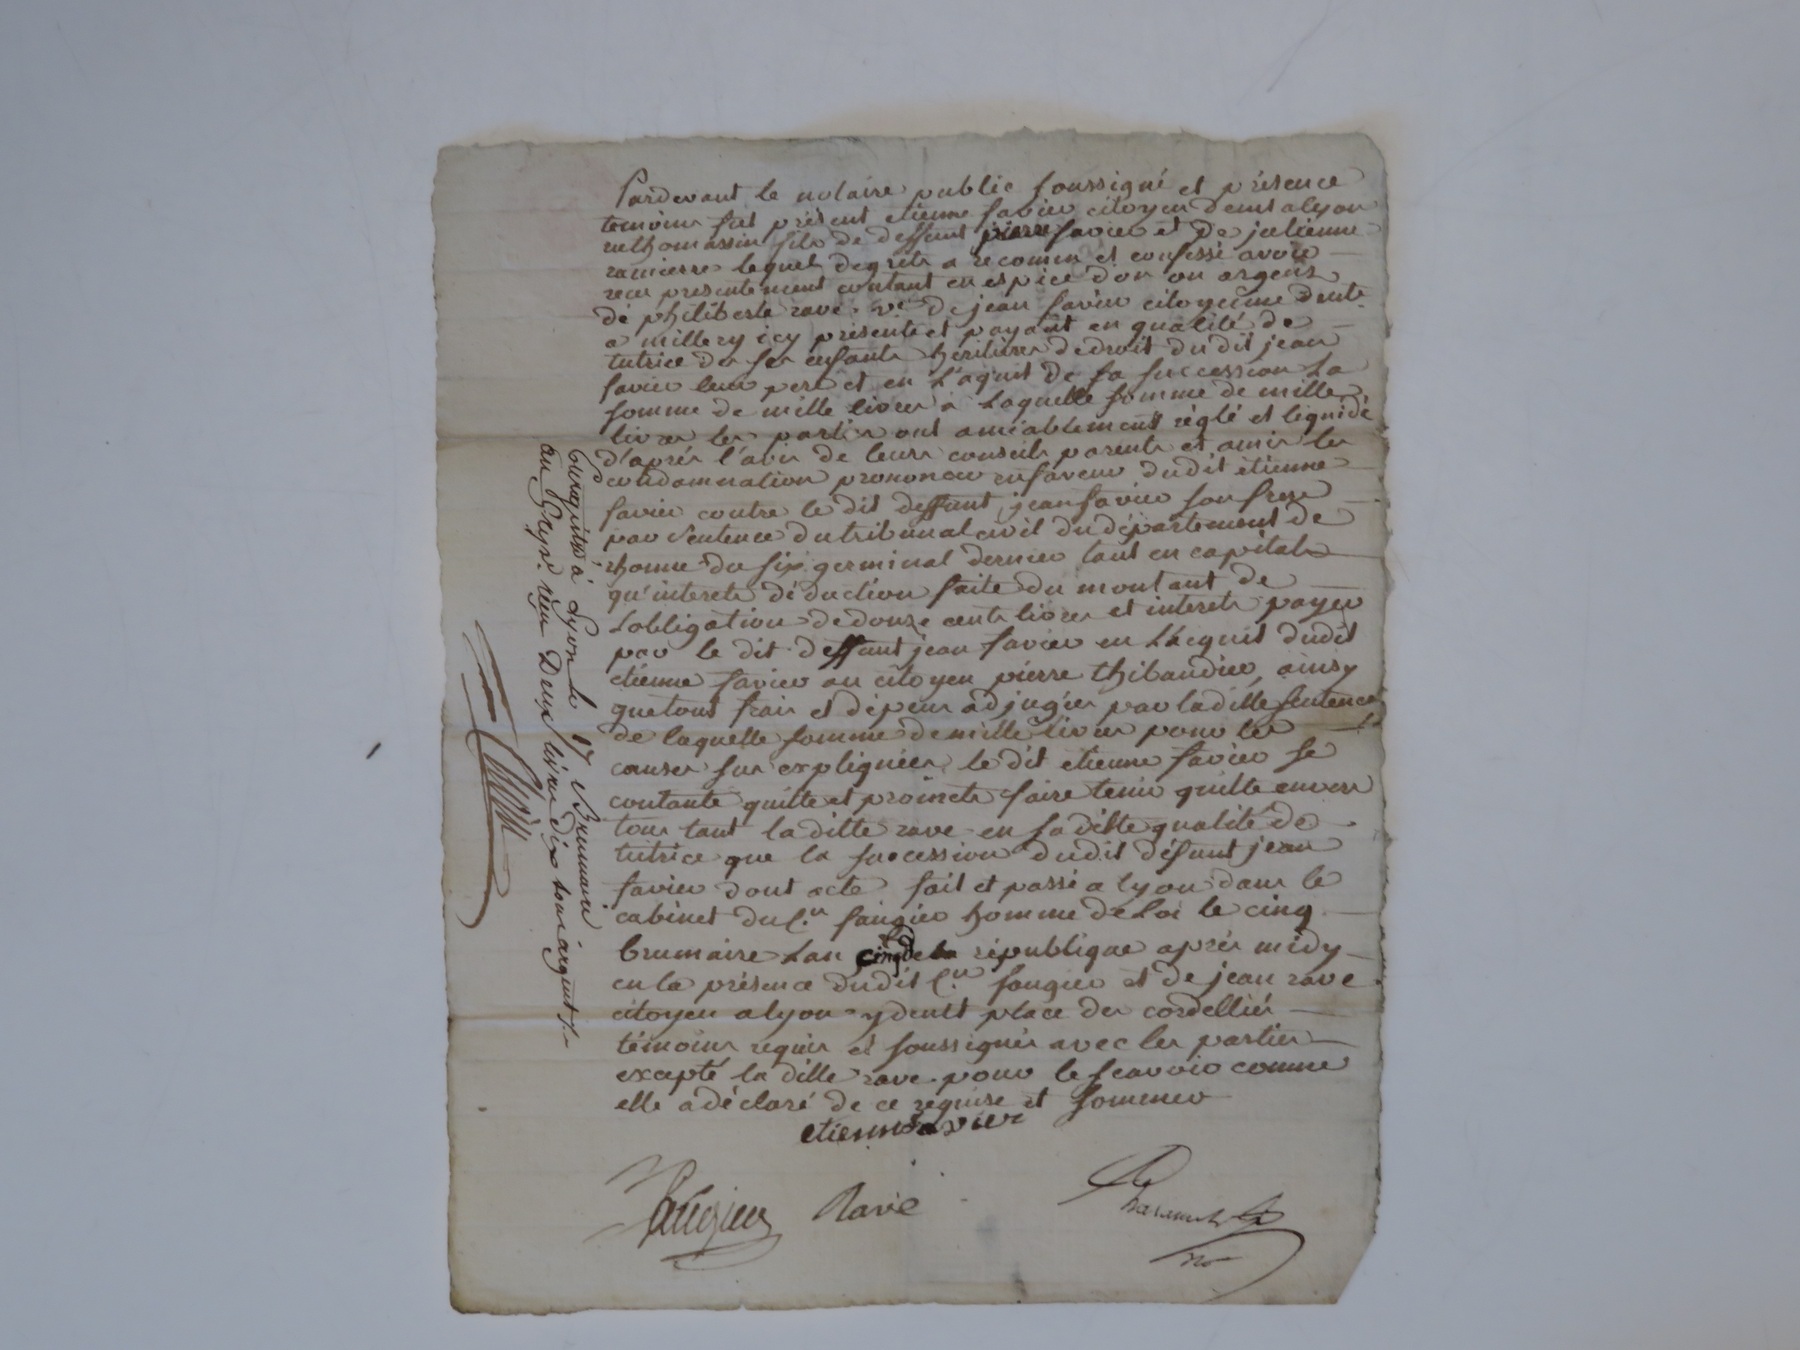 Pardevant le notaire public soussigné et présence
temoins fut présent etienne favier citoyen demt a lyon
rue thomassin fils de deffunt pierre favier et de julienne
lequel de gréts a reconnu et confessé avoir
recu presentement contant en espice d'or ou argent
de philiberte rave ve de jean favier citoyenne demte
a millery icy présente et payant en qualité de
tutrice de ses enfants héritiers de droit du dit jean
favier leur pere et en l'aquit de sa succession la
somme de mille livres à laquelle somme de mille
livres les parties ont amiablement réglé et liquidé
d'aprés l'avis de leurs conseils parents et amis les
condamnation prononcée en faveur dudit étienne
favier contre le dit deffunt jean favier son frere
par sentence du tribunal civil du département de
rhonne du six germinal dernier tant en capital
qu'interets déduction faite du montant de
l'obligation de douze cents livres et interets payée
par le dit deffunt jean favier en l'acquit dudit
etienne favier au citoyen pierre thibaudier, ainsy
que tous frais et dépens adjugées par la ditte sentence
de laquelle somme de mille livres pour les
causes sus expliquées le dit etienne favier se
contante quitte et promets faire tenir quitte envers
tous tant la ditte rave en sa ditte qualité de
tutrice que la succession dudit défunt jean
favier dont acte fait et passé a lyon dans le
cabinet du c.en faugier homme de loi le cinq
brumaire l'an cinq de la république aprés midy
en la présence dudit c.en faugier et de jean rave
citoyen a lyon y demt place des cordelliers
témoins requis et soussignés avec les parties
excepté la ditte rave pour le scavoir comme
elle a déclaré de ce requise et sommée
etienne favier
faugier Rave
no
Enregistré à Lyon le 17 Brumaire
an 5 reçu Deux livres dix sous argent